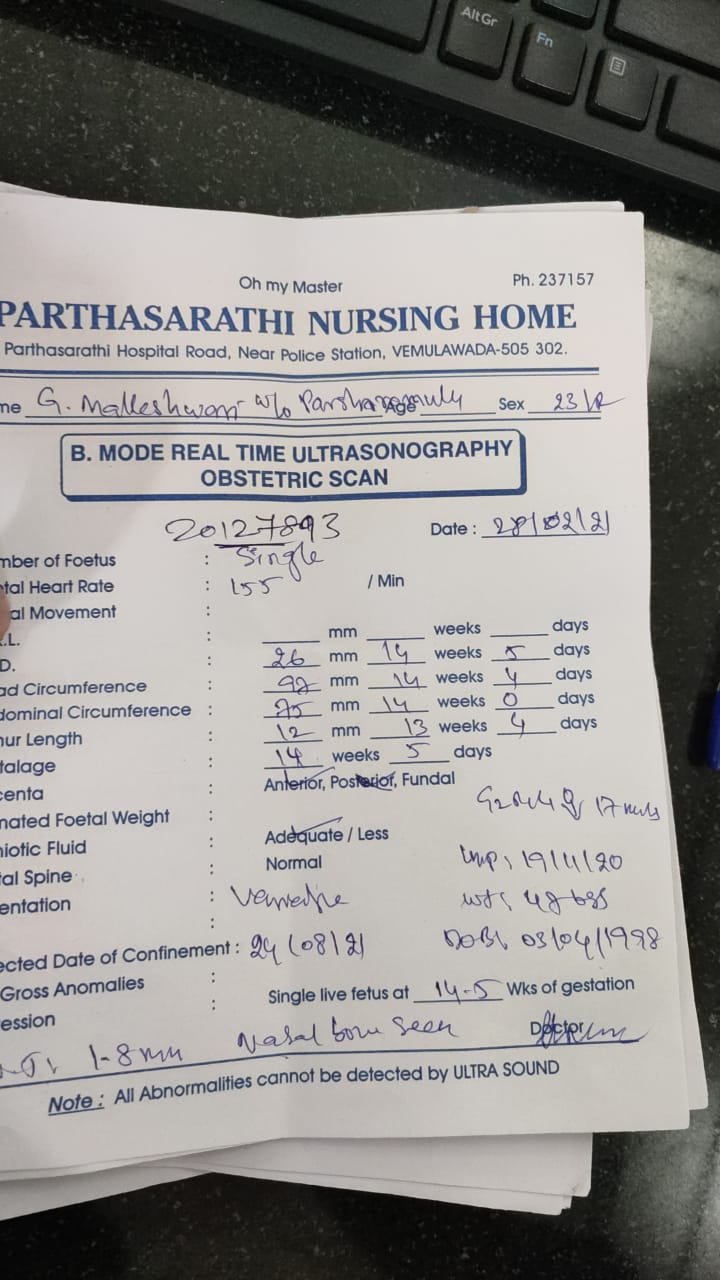 AltGr
Fn
Oh my Master
Ph. 237157
PARTHASARATHI NURSING HOME
Parthasarathi Hospital Road, Near Police Station, VEMULAWADA-505 302.
me G. Malleshwari w/o Parsharamuly Age Sex 23/
B. MODE REAL TIME ULTRASONOGRAPHY
OBSTETRIC SCAN
20127893
Date : 28/02/21
mber of Foetus : Single
tal Heart Rate : 155 / Min
al Movement :
.L. : mm weeks days
D. : 26 mm 14 weeks 5 days
ad Circumference : 92 mm 14 weeks 4 days
dominal Circumference : 75 mm 14 weeks 0 days
ur Length : 12 mm 13 weeks 4 days
talage : 14 weeks 5 days
centa : Anterior, Posterior, Fundal
nated Foetal Weight : 17
niotic Fluid : Adequate / Less
tal Spine : Normal LMP: 19/11/20
entation : wt: 48 kgs
:
ected Date of Confinement : 24/08/21 DOB: 03/04/1998
Gross Anomalies :
ession : Single live fetus at 14-5 Wks of gestation
1-8mm Nasal bone seen Doctor
Note : All Abnormalities cannot be detected by ULTRA SOUND